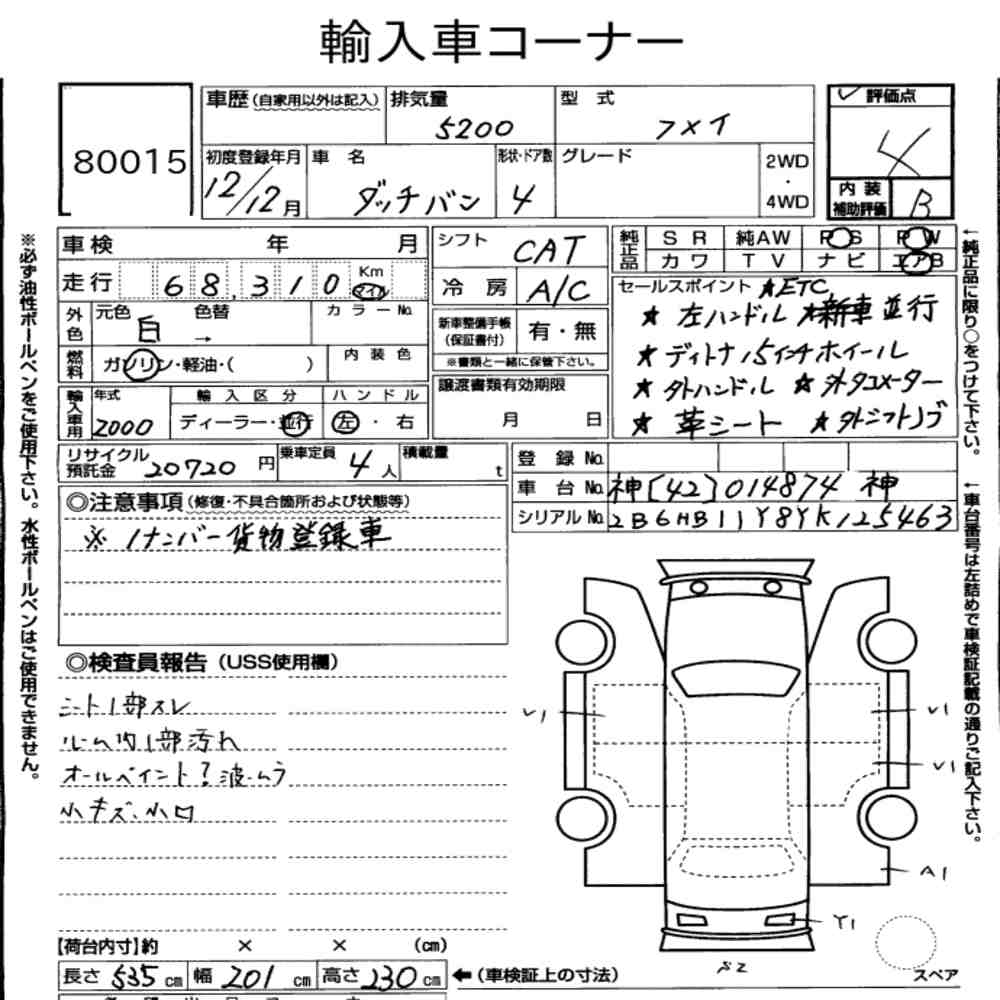 輸入車コーナー
80015
車歴(自家用以外は記入) 排気量 5200 型式 フメイ
評価点 4
初度登録年月 12/12月 車名 ダッチバン 形状・ドア数 4 グレード 2WD・4WD
内装補助評価 B
車検 年 月
走行 68,310 Km マイル
外色 元色 白 色替 → カラーNo.
燃料 ガソリン・軽油・( ) 内装色
輸入車用 年式 2000 輸入区分 ディーラー・並行 ハンドル 左・右
シフト CAT
冷房 A/C
新車整備手帳(保証書付) 有・無
※書類と一緒に保管下さい。
譲渡書類有効期限
月 日
純正品 SR 純AW PS PW
カワ TV ナビ エアB
セールスポイント ★ETC
★左ハンドル ★新車並行
★ディトナ15インチホイール
★外ハンドル ★外タコメーター
★革シート ★外シフトノブ
リサイクル預託金 20720円 乗車定員 4人 積載量 t
登録No.
車台No. 神[42]014874神
シリアルNo. 2B6HB11Y8YK125463
◎注意事項(修復・不具合箇所および状態等)
※1ナンバー貨物登録車
◎検査員報告(USS使用欄)
シート1部スレ
ルーム内1部汚れ
オールペイント?波.ムラ
小キズ.小凹
V1
V1
V1
A1
Y1
S2
スペア
【荷台内寸】約 × × (cm)
長さ 535cm 幅 201cm 高さ 230cm ←(車検証上の寸法)
※必ず油性ボールペンをご使用下さい。水性ボールペンはご使用できません。
←純正品に限り○をつけて下さい。
←車台番号は左詰めで車検証記載の通りご記入下さい。